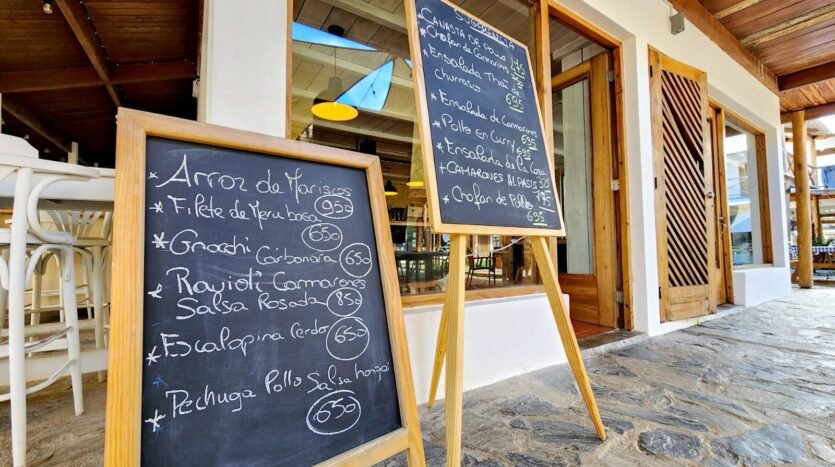 * Arroz de Mariscos
950
* Filete de Meru basa
650
* Gnocchi
Carbonaria 650
* Ravioli Cammarones
Salsa Rosada 850
* Escalopina Cerdo 650
* Pechuga Pollo Salsa hongos
650
SUGERENCIA
CANASTA DE POLLO
* Chofan de Camarones
* Ensalada Thai de
churrasco 695
* Ensalada de Camarones
695
* Pollo en Curry 695
* Ensalada de la Casa
+ CAMARONES AL PASTIS
* Chofan de Pollo
695